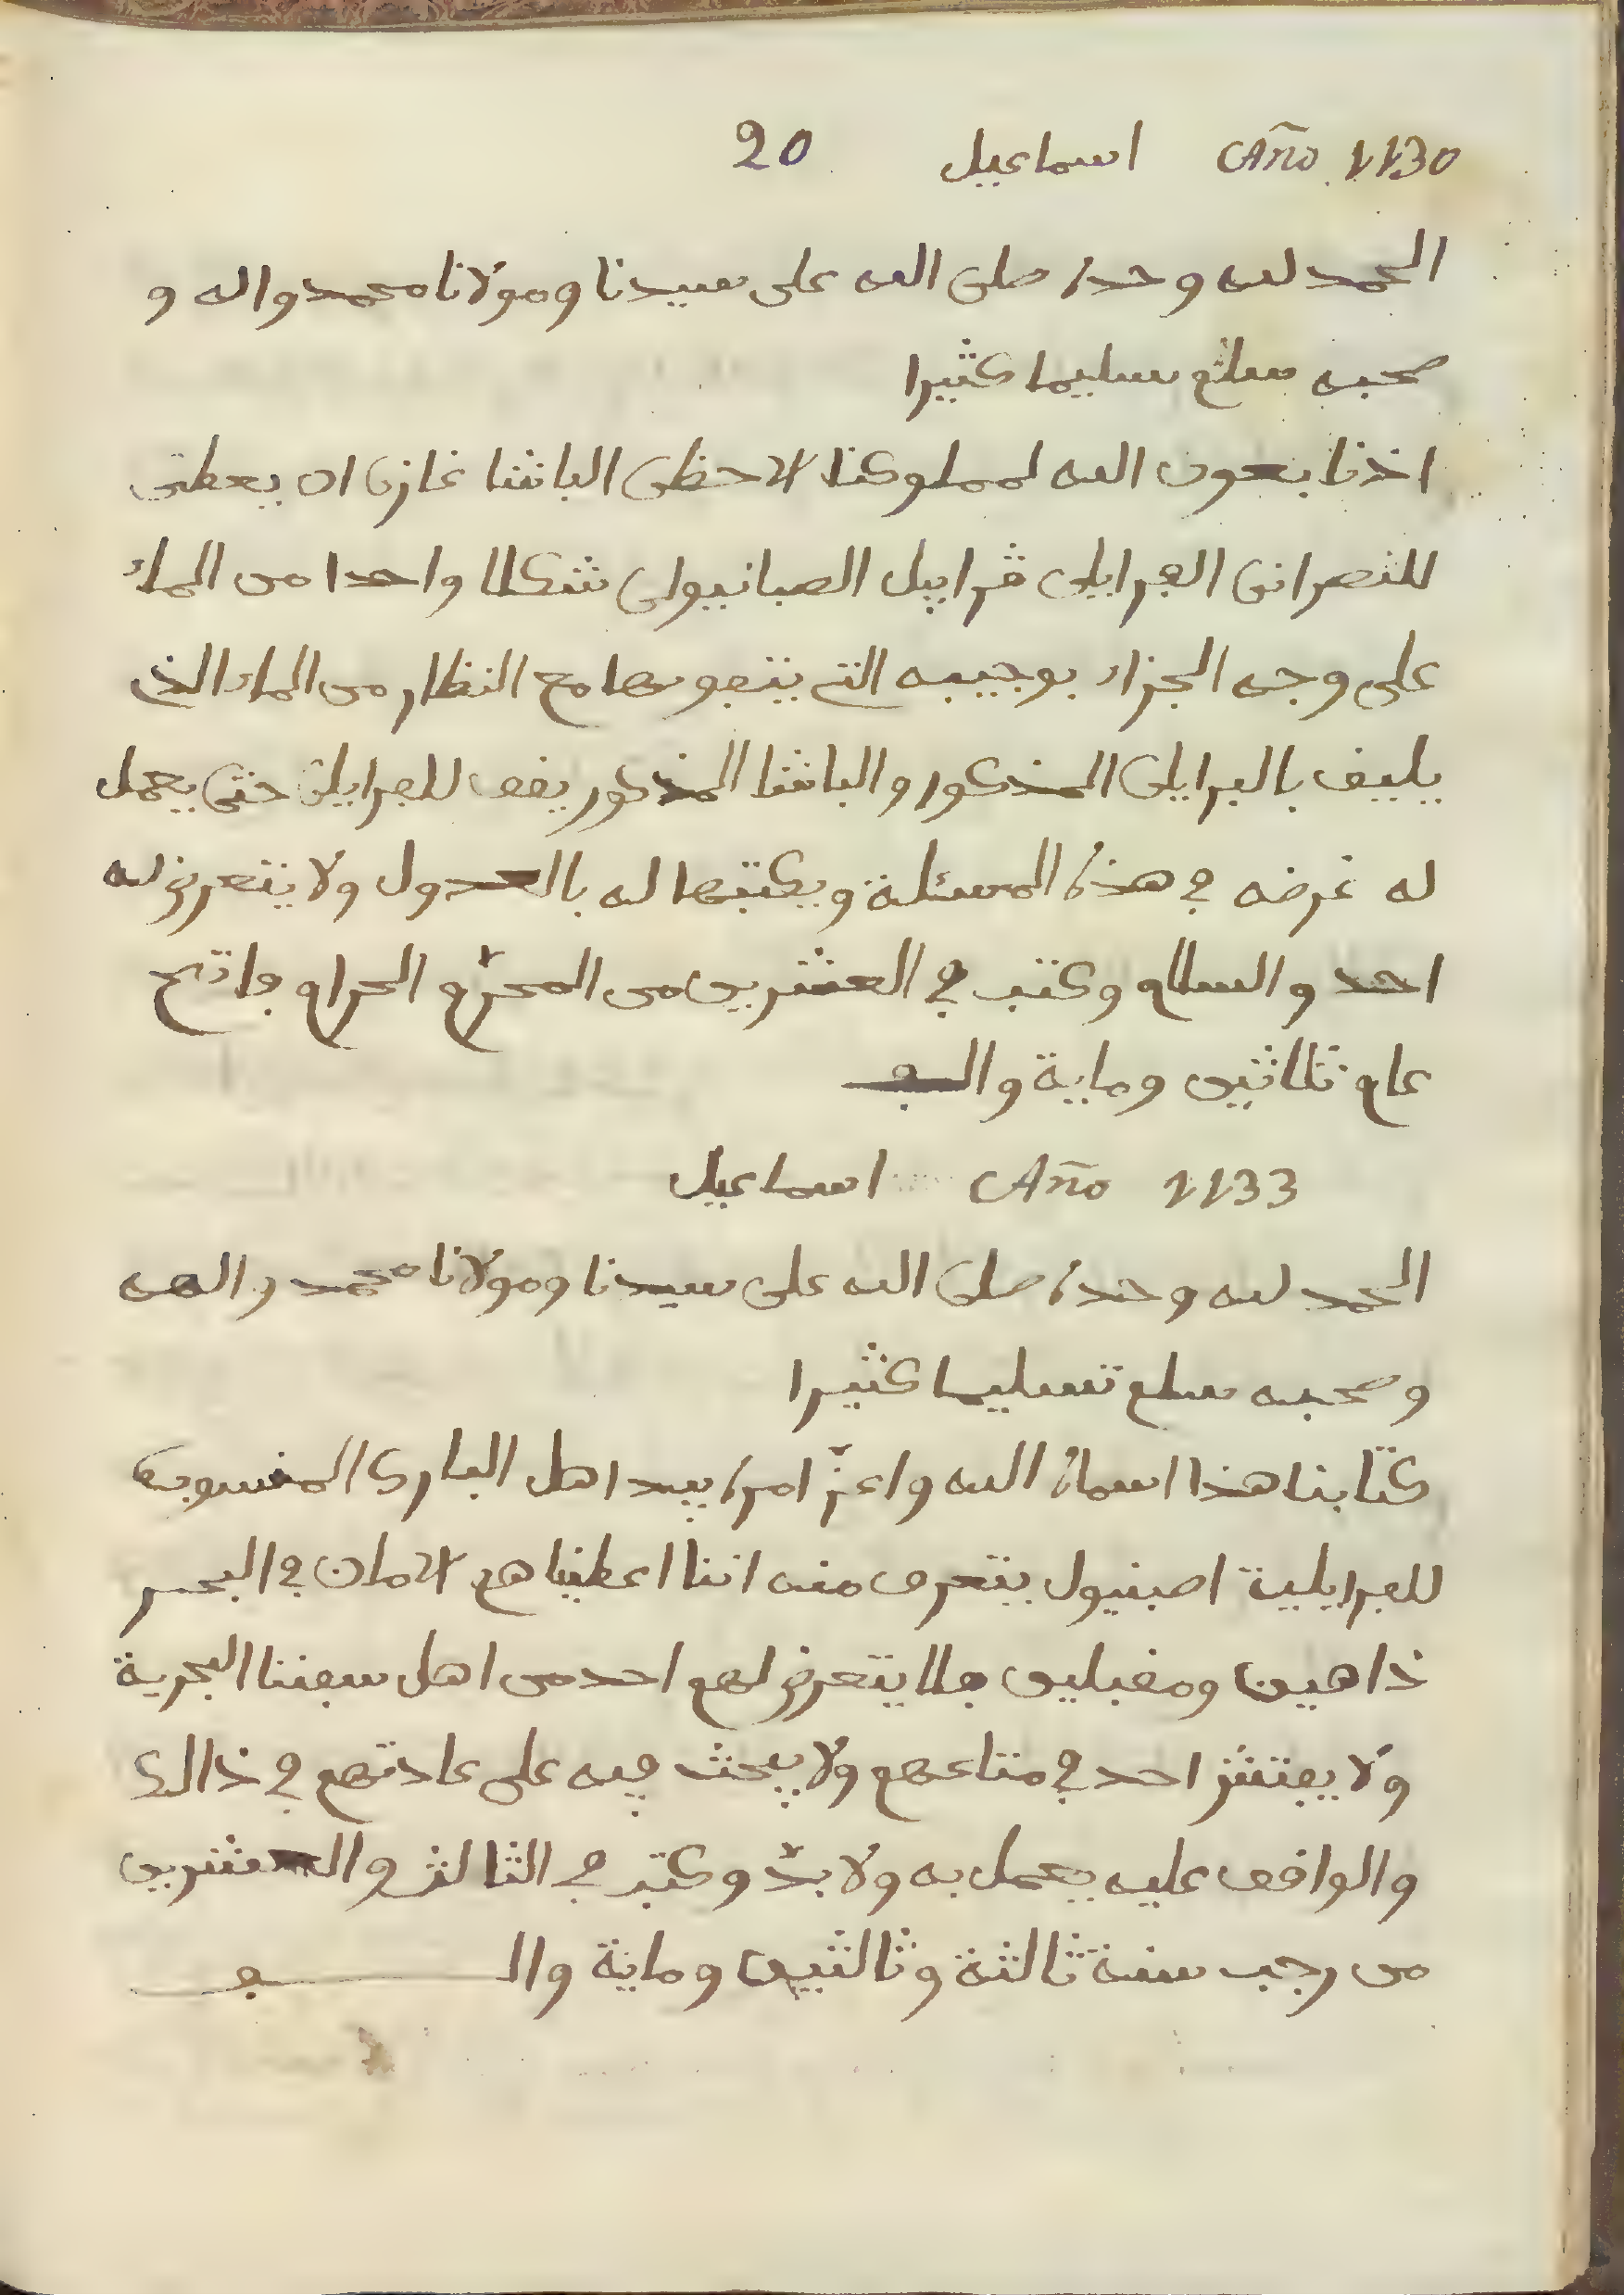 Año 1130 اسماعيل 20
الحمد لله وحده صلى الله على سيدنا ومولانا محمد واله و
صحبه سلم سليما كثيرا
اذنا بعون الله لمملوكنا الاحظى الباشا غازى ان يعطى
للنصرانى الفرايلى ڧرابيل الصبانيولى شكلا واحدا من الماء
على وجه الجزاء بوجيبه التى يتفو بها مع النظار من الماء الذى
يليق بالبرايلى المذكور والباشا المذكور يقف للفرايلى حتى يعمل
له غرضه في هذه المسئلة ويكتبها له بالعدول ولا يتعرض له
احد والسلام وكتب في العشرين من المحرّم الحرام فاتح
عام ثلاثين وماية والف
Año 1133 اسماعيل
الحمد لله وحده صلى الله على سيدنا ومولانا محمد والهه
وصحبه سلم تسليما كثيرا
كتابنا هذا اسماه الله واعزّ امره بيد اهل البارك المنسوبة
للفرايلية اصبنيول يتعرف منه اننا اعطيناهم الامان في البحر
ذاهين ومقبلين فلا يتعرض لهم احد من اهل سفننا البحرية
ولا يفتش احد في متاعهم ولا يبحث فيه على عادتهم في ذالك
والواقف عليه يعمل به ولا بدّ وكتب في الثالث والعشرين
من رجب سنة ثالثة وثالثين وماية والف